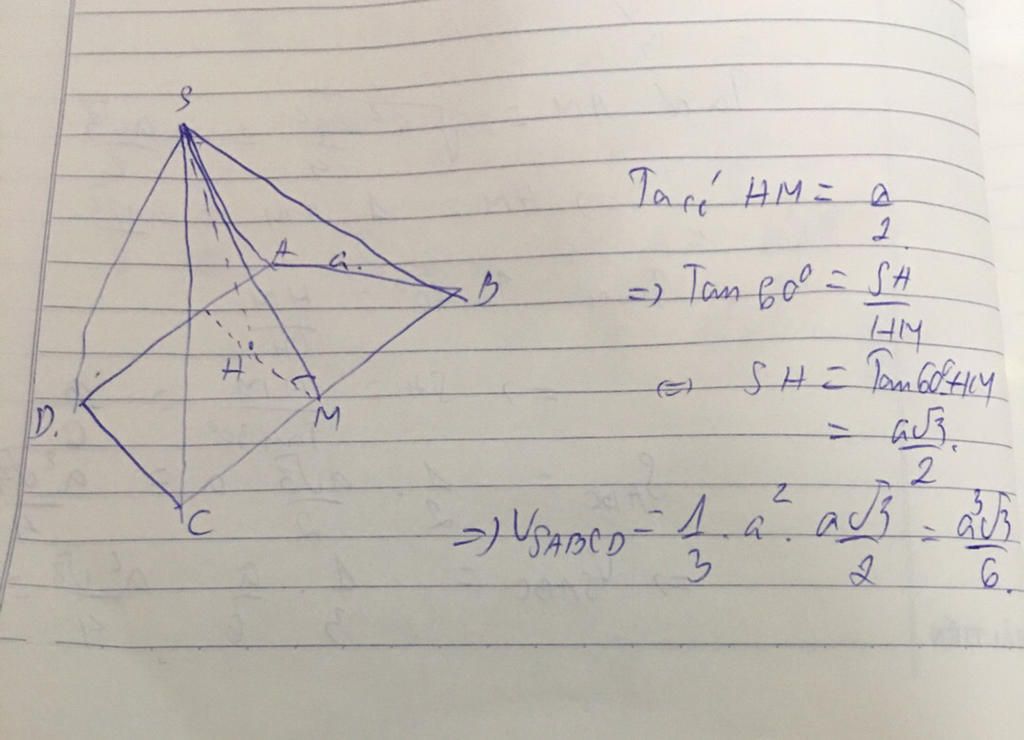 S
A a.
B
H
D.
M
C
Ta có HM = a/2
=> Tan 60⁰ = SH/HM
<=> SH = Tan60⁰.HM
= a√3/2.
=> V_SABCD = 1/3 . a² . a√3/2 = a³√3/6.